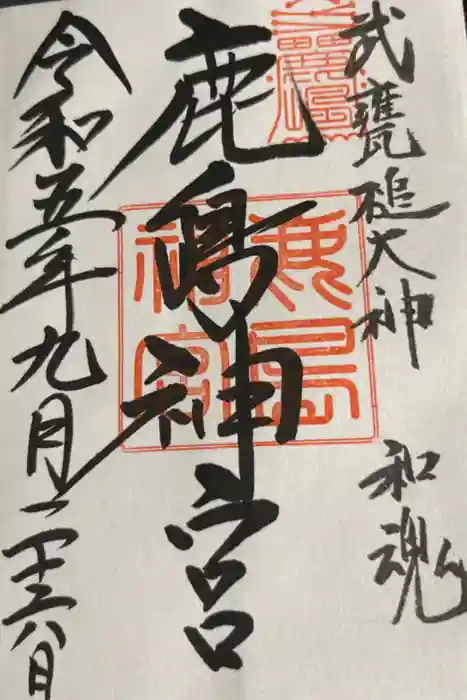 武甕槌大神 和魂
鹿島神宮
令和五年九月二十六日
鹿島
神宮